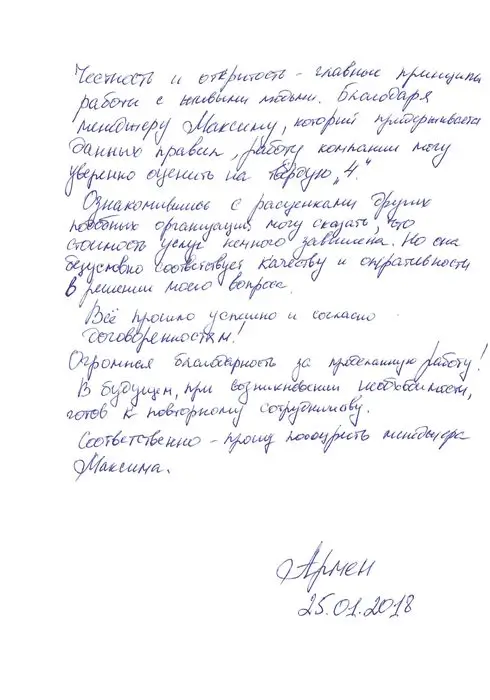 Честность и открытость - главные принципы
работы с живыми людьми. Благодаря
менеджеру Максиму, который придерживается
данных правил, работу компании могу
уверенно оценить на твёрдую „4".
Ознакомившись с расценками других
подобных организаций могу сказать, что
стоимость услуг немного завышена. Но она
безусловно соответствует качеству и оперативности
в решении моего вопроса.
Всё прошло успешно и согласно
договоренностям!
Огромная благодарность за проделанную работу!
В будущем, при возникновении необходимости,
готов к повторному сотрудничеству.
Соответственно - прошу поощрить менеджера
Максима.
Армен
25.01.2018